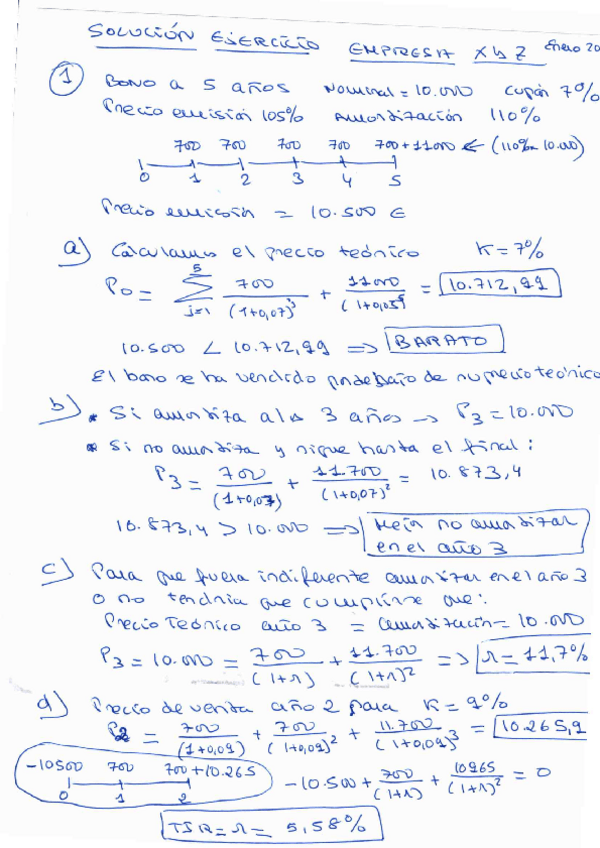 SOLUCIÓN EJERCICIO EMPRESA XYZ Enero 20
1 Bono a 5 años Nominal = 10.000 Cupón 7%
Precio emisión 105% Amortización 110%
700 700 700 700 700 + 11000 ← (110% 10.000)
0 1 2 3 4 5
Precio emisión = 10.500 €
a) Calculamos el precio teórico K = 7%
P0 = 5 Σ j=1 700/(1+0,07)^j + 11000/(1+0,05)^5 = 10.712,99
10.500 < 10.712,99 => BARATO
El bono se ha vendido por debajo de su precio teórico
b) * Si amortiza a los 3 años → P3 = 10.000
* Si no amortiza y sigue hasta el final:
P3 = 700/(1+0,07) + 11.700/(1+0,07)^2 = 10.873,4
10.873,4 > 10.000 => Mejor no amortizar
en el año 3
c) Para que fuera indiferente amortizar en el año 3
o no tendría que cumplirse que:
Precio Teórico año 3 = Amortización = 10.000
P3 = 10.000 = 700/(1+r) + 11.700/(1+r)^2 => r = 11,7%
d) Precio de venta año 2 para K = 9%
P2 = 700/(1+0,09) + 700/(1+0,09)^2 + 11.700/(1+0,09)^3 = 10.265,9
-10500 700 700 + 10.265
0 1 2
-10.500 + 700/(1+r) + 10965/(1+r)^2 = 0
TIR = r = 5,58%